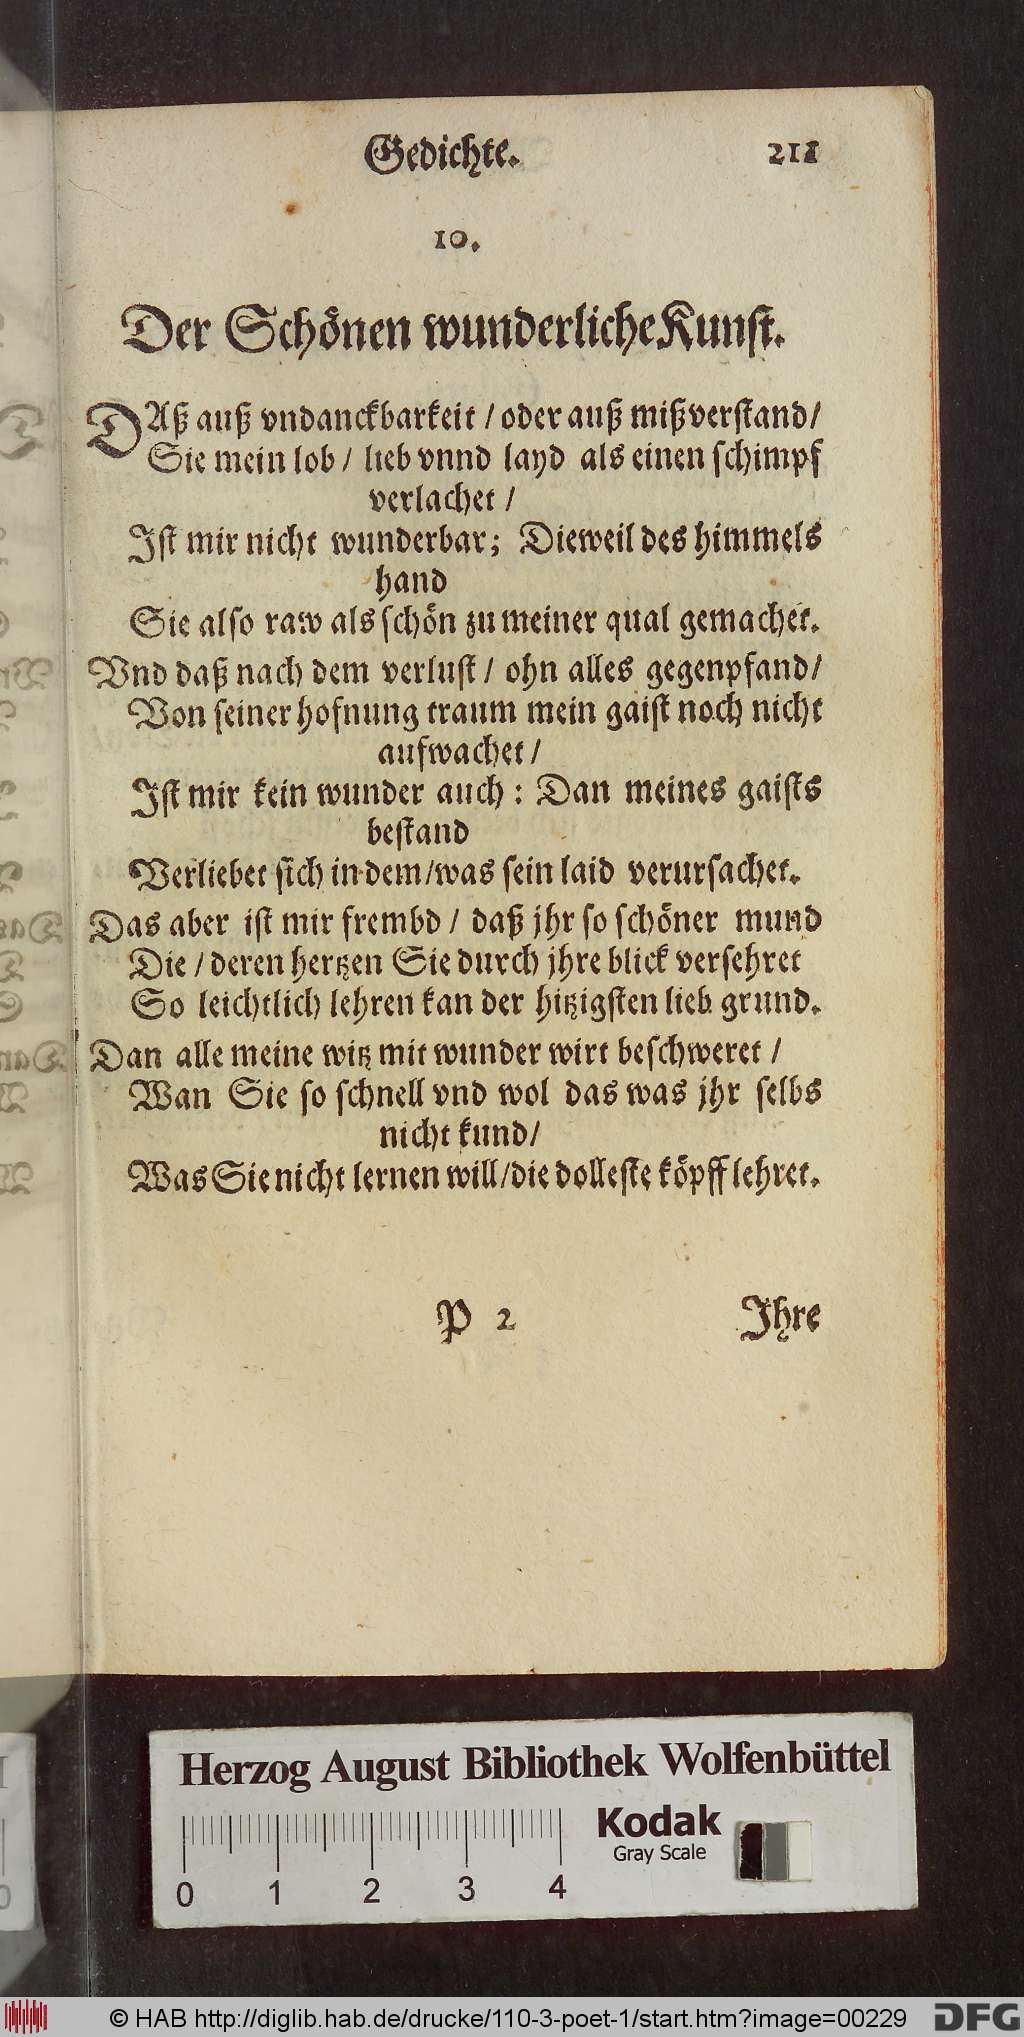 Gedichte. 211
10.
Der Schönen wunderliche Kunst.
DAß auß vndanckbarkeit / oder auß mißverstand /
Sie mein lob / lieb vnnd layd als einen schimpf
verlachet /
Ist mir nicht wunderbar; Dieweil des himmels
hand
Sie also raw als schön zu meiner qual gemachet.
Vnd daß nach dem verlust / ohn alles gegenpfand /
Von seiner hofnung traum mein gaist noch nicht
aufwachet /
Ist mir kein wunder auch: Dan meines gaists
bestand
Verliebet sich in dem / was sein laid verursachet.
Das aber ist mir frembd / daß jhr so schöner mund
Die / deren hertzen Sie durch jhre blick versehret
So leichtlich lehren kan der hitzigsten lieb grund.
Dan alle meine witz mit wunder wirt beschweret /
Wan Sie so schnell vnd wol das was jhr selbs
nicht kund /
Was Sie nicht lernen will / die dolleste köpff lehret.
P 2 Ihre
Herzog August Bibliothek Wolfenbüttel
Kodak
Gray Scale
0 1 2 3 4
© HAB http://diglib.hab.de/drucke/110-3-poet-1/start.htm?image=00229 DFG